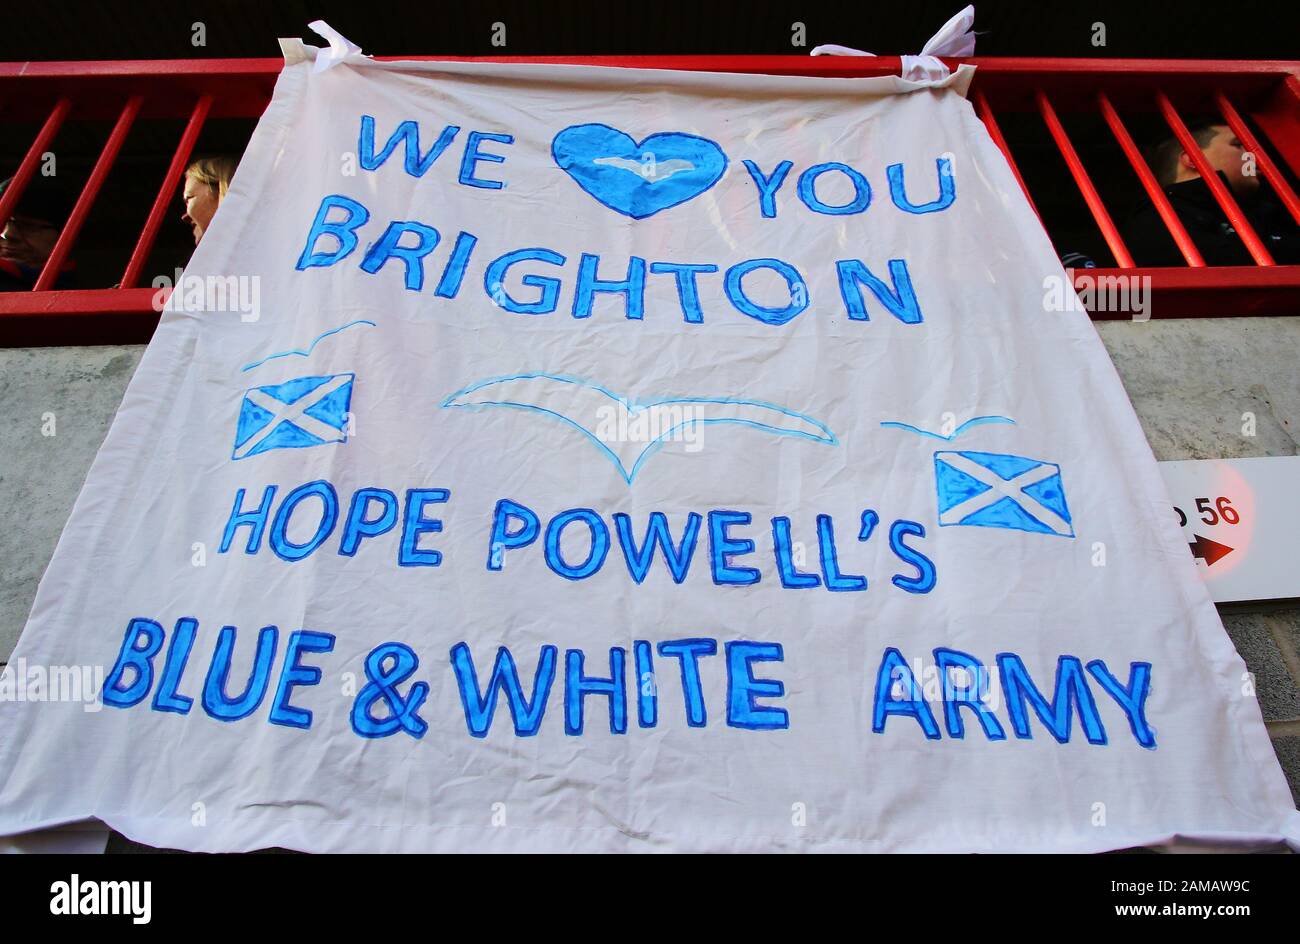 WE YOU
BRIGHTON
HOPE POWELL'S
BLUE & WHITE ARMY
56
alamy
Image ID: 2AMAW9C
www.alamy.com